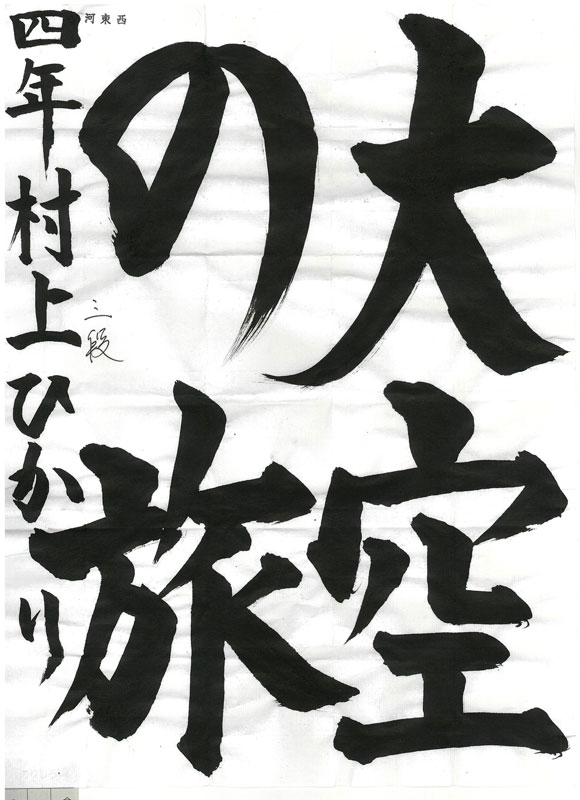 大空
の旅
四年村上ひかり
三段
河東西